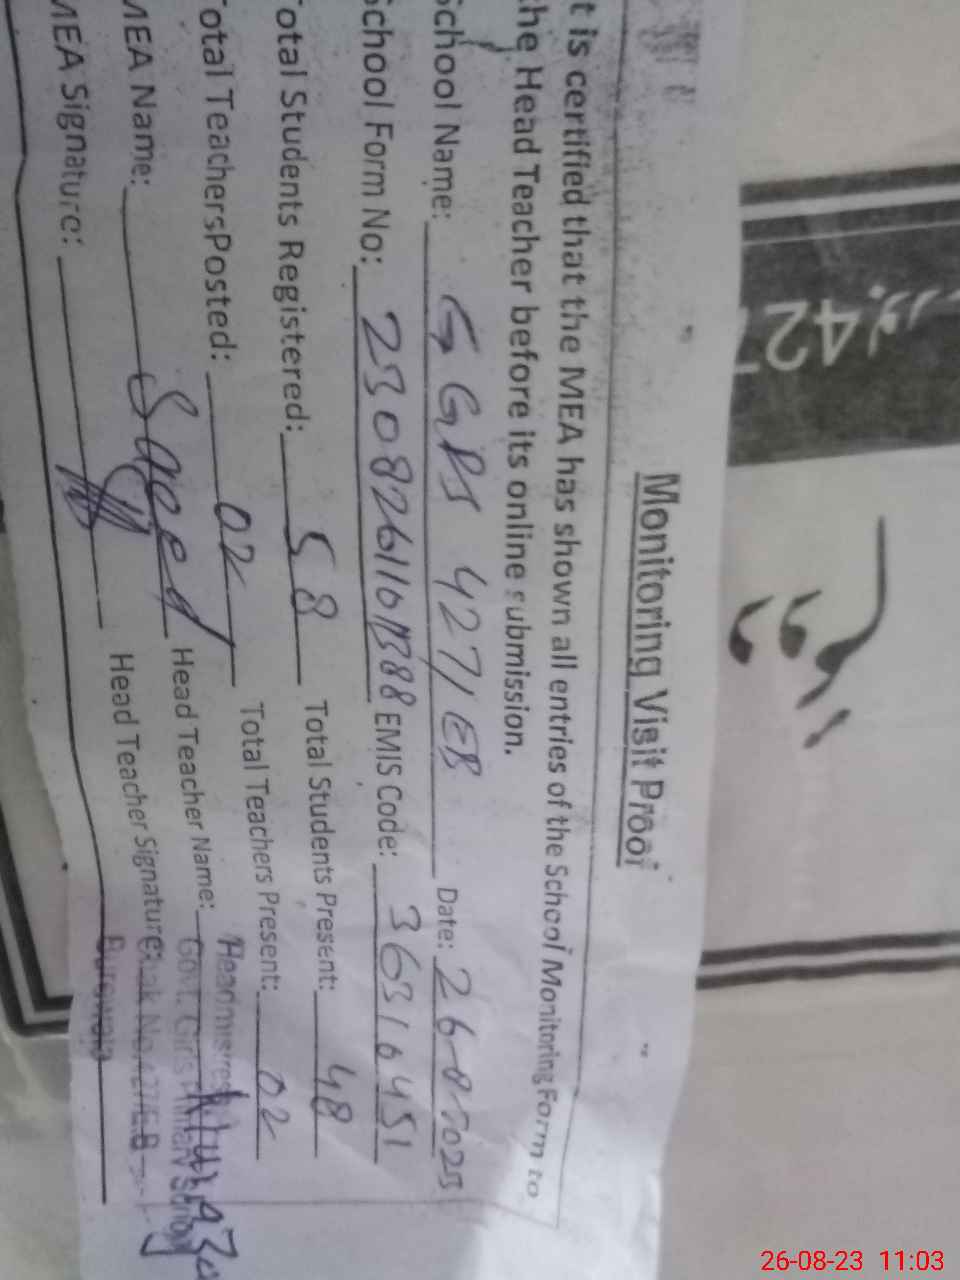 Monitoring Visit Proof
t is certified that the MEA has shown all entries of the School Monitoring Form to
the Head Teacher before its online submission.
School Name: GGPS 427/EB Date: 26-8-2023
School Form No: EMIS Code: 36316451
Total Students Registered: 58 Total Students Present: 48
Total TeachersPosted: 02 Total Teachers Present: 02
MEA Name: Saeed Head Teacher Name:
MEA Signature: Head Teacher Signature:
Headmistress
Govt. Girls Primary School
Chak No.427/E.B
Burewala
427
26-08-23 11:03